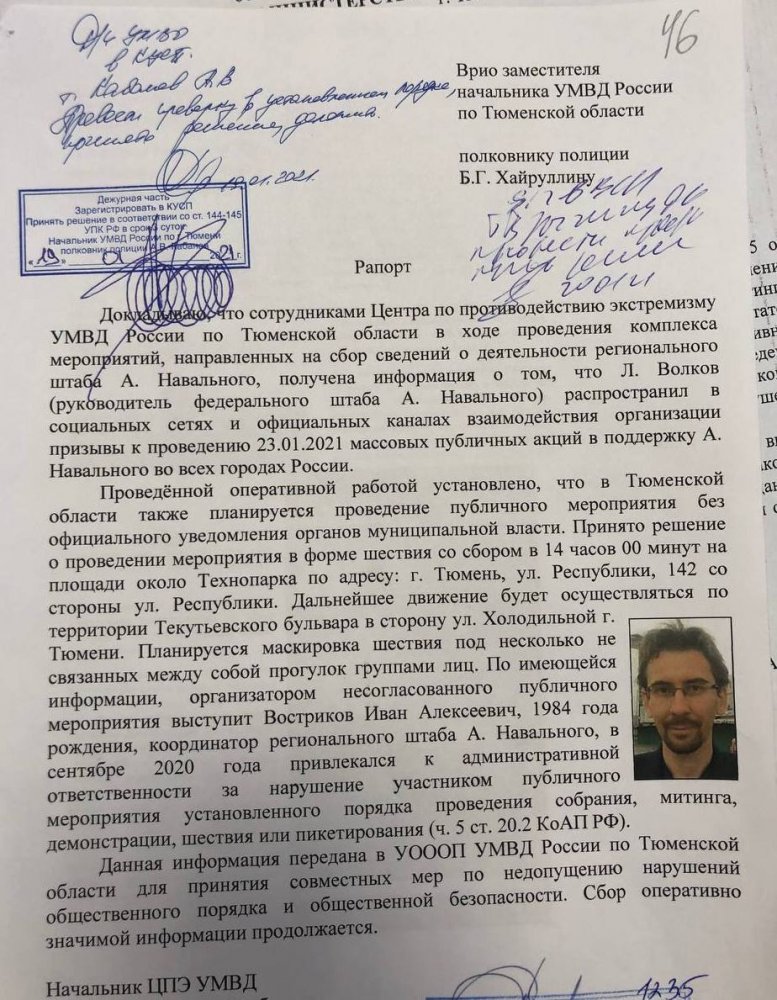 46
Д/ч УМВД
в КУСП.
г. Кабанов А.В
Провести проверку в установленном порядке,
принять решение, доложить.
19.01.2021.
Врио заместителя
начальника УМВД России
по Тюменской области
полковнику полиции
Б.Г. Хайруллину
Дежурная часть
Зарегистрировать в КУСП
Принять решение в соответствии со ст. 144-145
УПК РФ в срок суток
Начальник УМВД России по г. Тюмени
полковник полиции А.В. Кабанов
«19» 01 2021г.
Рапорт
Докладываю, что сотрудниками Центра по противодействию экстремизму
УМВД России по Тюменской области в ходе проведения комплекса
мероприятий, направленных на сбор сведений о деятельности регионального
штаба А. Навального, получена информация о том, что Л. Волков
(руководитель федерального штаба А. Навального) распространил в
социальных сетях и официальных каналах взаимодействия организации
призывы к проведению 23.01.2021 массовых публичных акций в поддержку А.
Навального во всех городах России.
Проведённой оперативной работой установлено, что в Тюменской
области также планируется проведение публичного мероприятия без
официального уведомления органов муниципальной власти. Принято решение
о проведении мероприятия в форме шествия со сбором в 14 часов 00 минут на
площади около Технопарка по адресу: г. Тюмень, ул. Республики, 142 со
стороны ул. Республики. Дальнейшее движение будет осуществляться по
территории Текутьевского бульвара в сторону ул. Холодильной г.
Тюмени. Планируется маскировка шествия под несколько не
связанных между собой прогулок группами лиц. По имеющейся
информации, организатором несогласованного публичного
мероприятия выступит Востриков Иван Алексеевич, 1984 года
рождения, координатор регионального штаба А. Навального, в
сентябре 2020 года привлекался к административной
ответственности за нарушение участником публичного
мероприятия установленного порядка проведения собрания, митинга,
демонстрации, шествия или пикетирования (ч. 5 ст. 20.2 КоАП РФ).
Данная информация передана в УОООП УМВД России по Тюменской
области для принятия совместных мер по недопущению нарушений
общественного порядка и общественной безопасности. Сбор оперативно
значимой информации продолжается.
Начальник ЦПЭ УМВД
1235